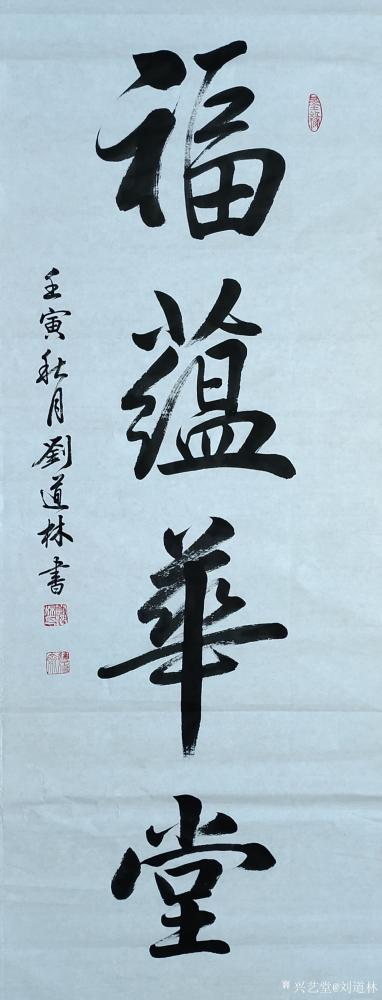 福蕴華堂
壬寅秋月劉道林書
兴艺堂@刘道林